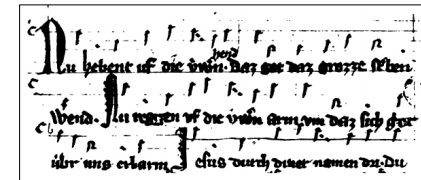 Nu hebent uf die uwern hend. Daz got daz grozze sterben
wend. Nu reggen uf die uwern arm, um daz sich got
ubr uns erbarm. Jesus durch diner namen dri. Du